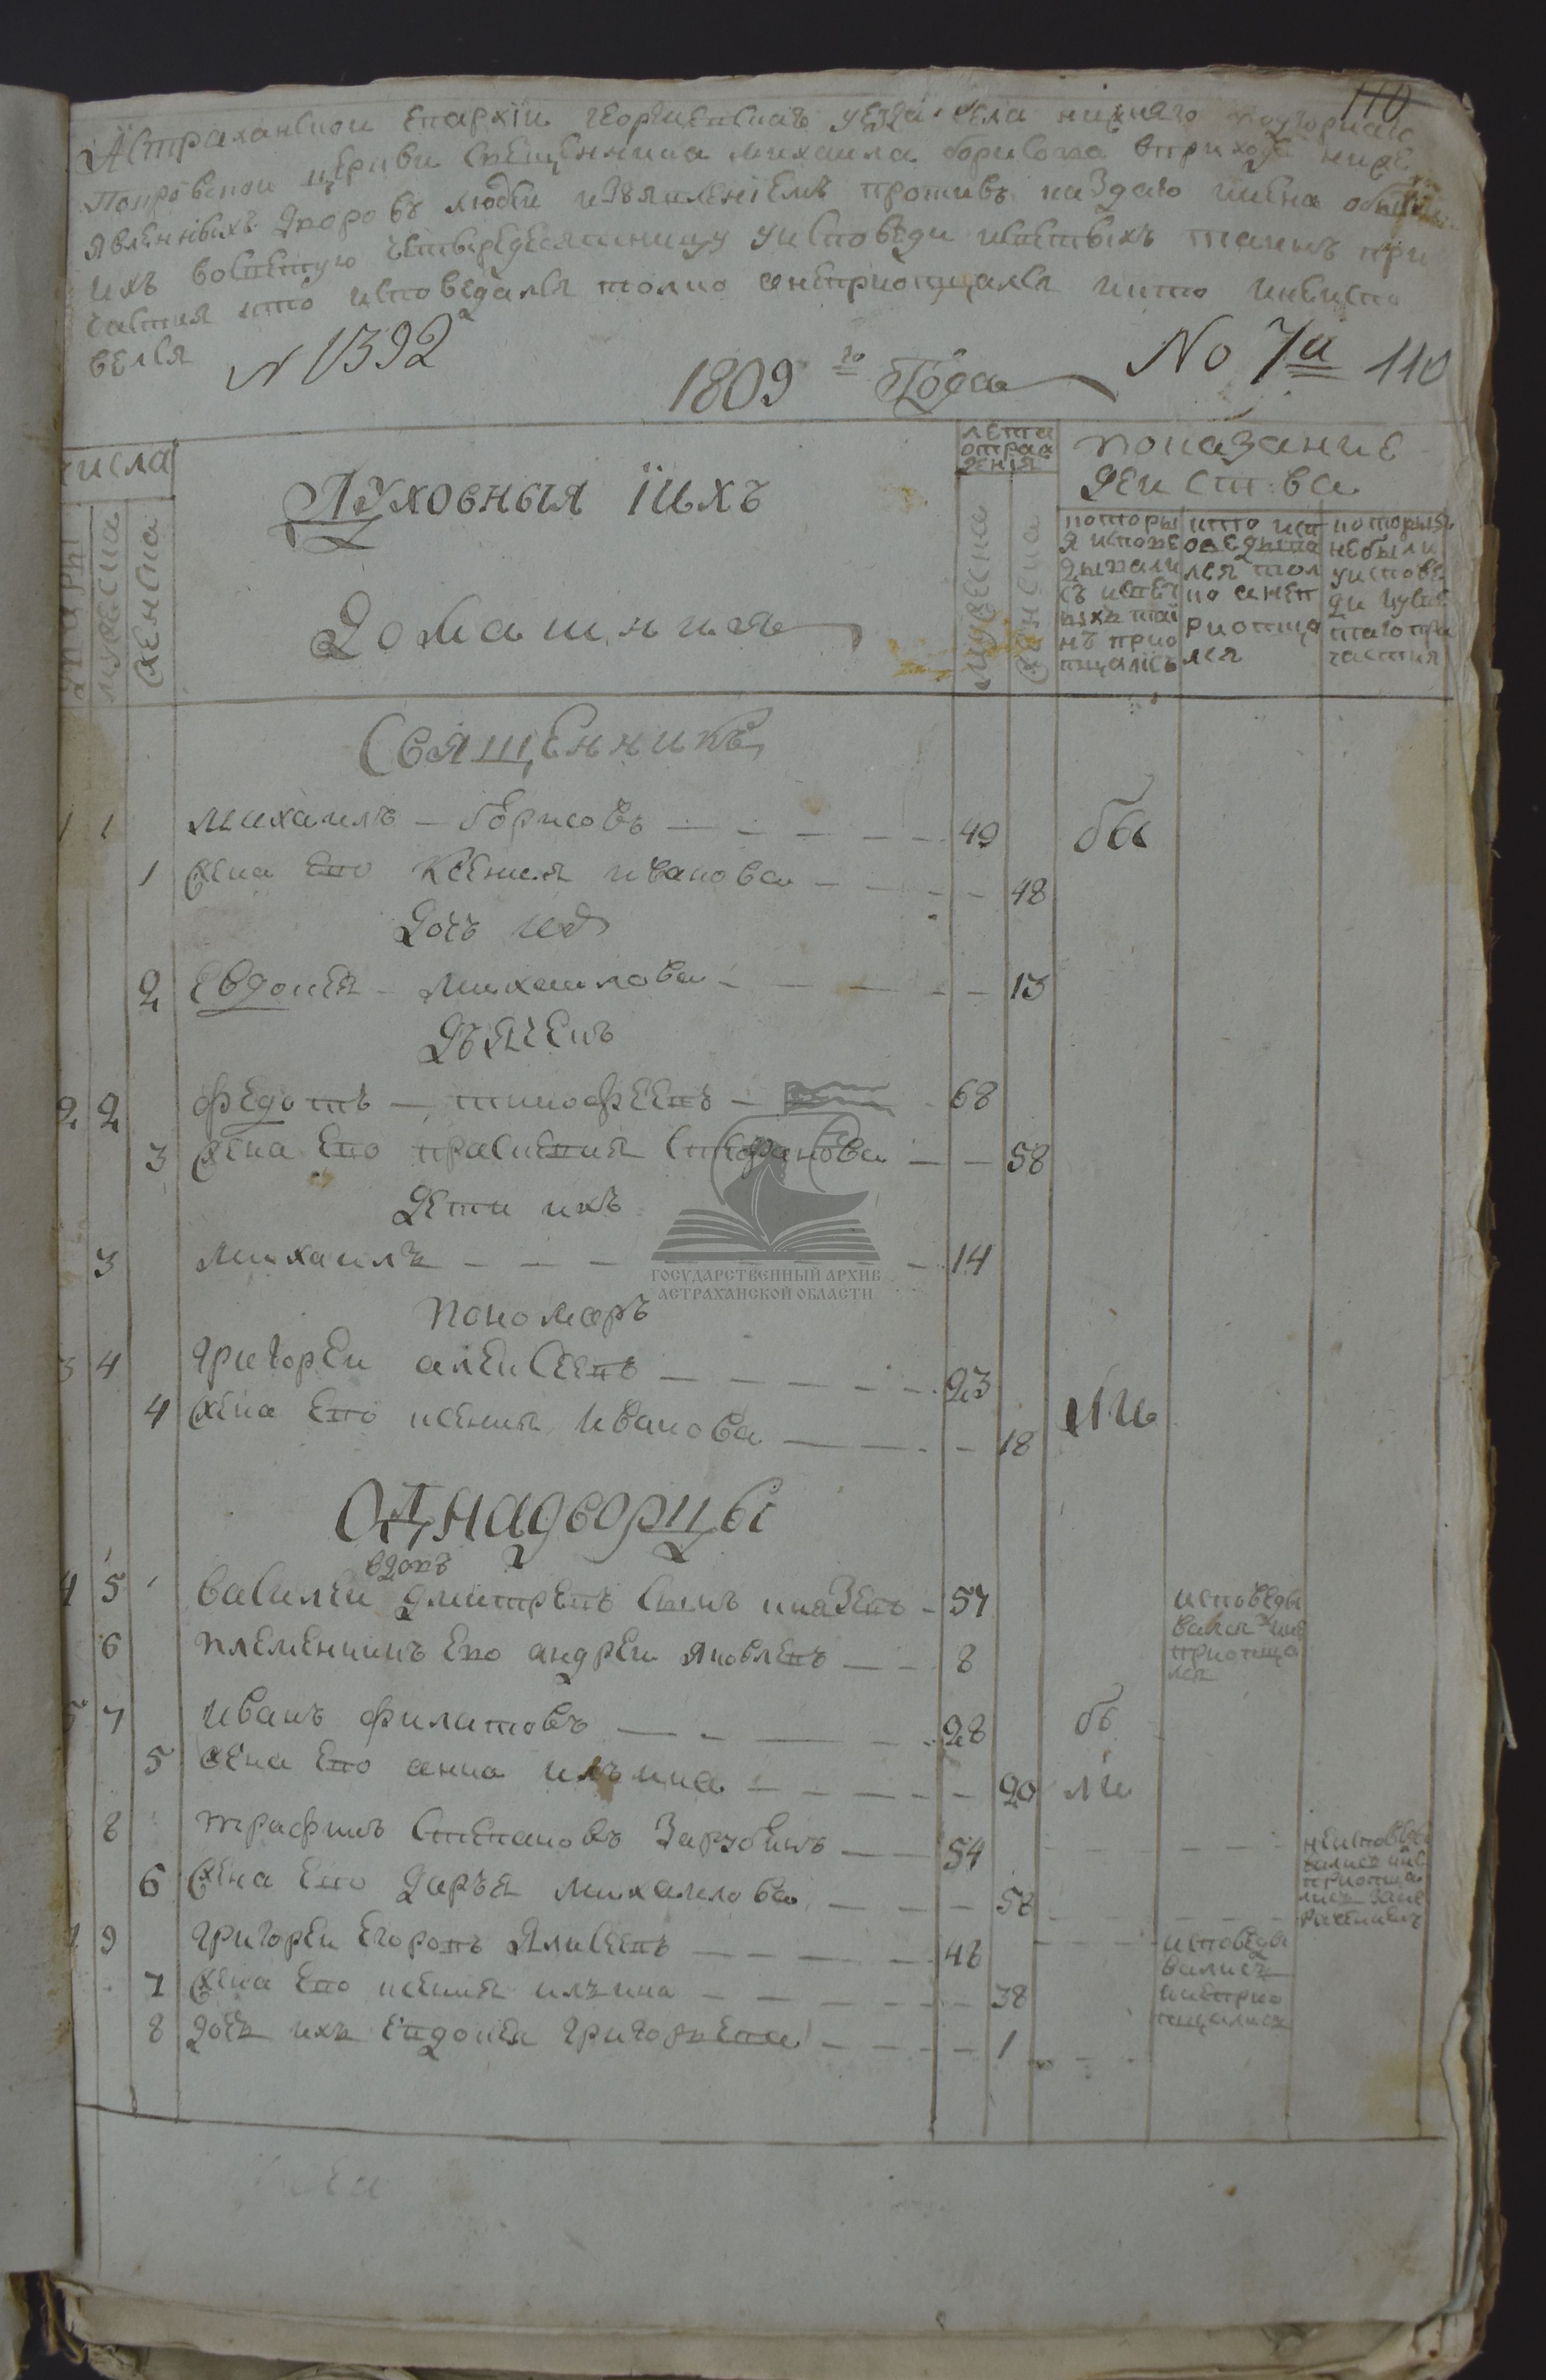 110
Астраханской епархіи георгиевскаго уезда села нижняго подгорнаго
Покровской церкви священника михаила борисова вприходе ниже
явленныхъ дворовъ людеи изъявленіемъ противъ каздаго имена
ихъ восвятую четыредесятницу уисповеди исвятыхъ таинъ при
частия кто исповедался толко анеприопщался икто инеиспо
велся
N 1392
1809 го Года
No 7й 110
числа
Духовныя їихъ
Домашния
лета отраждения
показание деиства
дворы
мужеска
женска
мужеска
женска
которыя исповедывались исвятыхъ таинъ приопщались
кто исповедывался толко анеприопщался
которыя небыли уисповеди иусвятаго причастия
Священникъ
1 1 михаилъ – борисовъ 49 бы
1 жена его Ксения иванова 48
Дочь ихъ
2 Евдокея михаилова 13
Дьячекъ
2 2 федотъ – тимофеевъ 68
3 жена его прасковия стефанова 58
Дети ихъ
3 михаилъ 14
ГОСУДАРСТВЕННЫЙ АРХИВ
АСТРАХАНСКОЙ ОБЛАСТИ
Пономаръ
3 4 григореи алексеевъ 23
4 жена его ксения иванова 18 ли
Однадворцы
вдовъ
4 5 василеи дмитревъ сынъ князевъ 57 исповедывался инеприопщался
6 племенникъ его андреи яковлевъ 8
5 7 иванъ филатовъ 28 бы
5 жена его анна илъина 20 ли
8 трафимъ степановъ Зарубинъ 54
6 жена его даръя михаилова 58
9 григореи егоровъ Аликеевъ 48 исповедывалисъ инеприопщалисъ
7 жена его ксения илъина 38
8 дочь ихъ евдокея григорьева 1